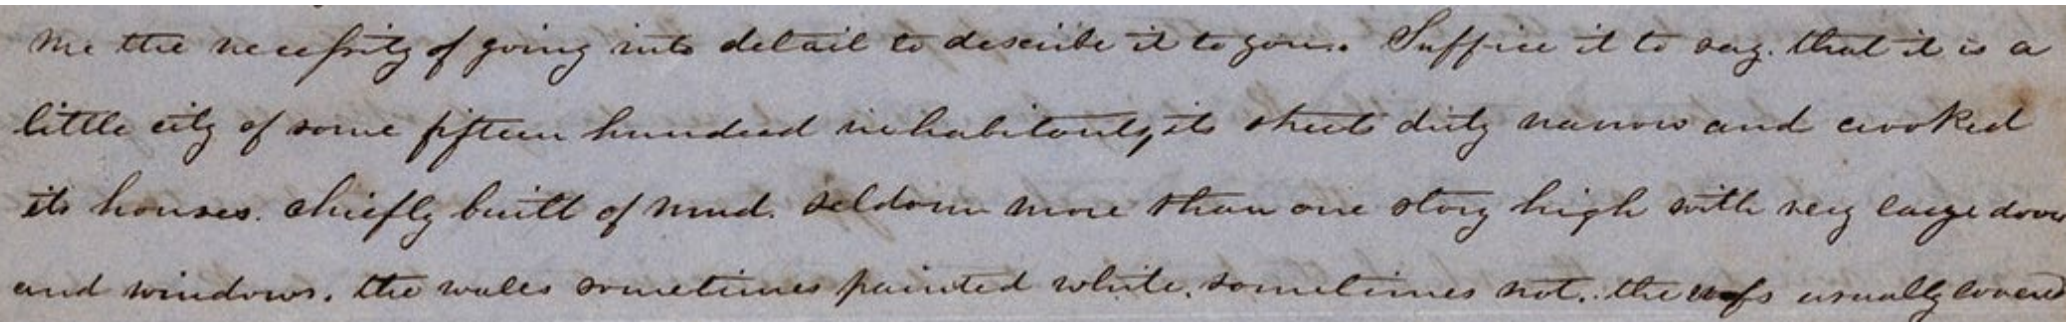 me the necessity of going into detail to describe it to you. Suffice it to say. that it is a
little city of some fifteen hundred inhabitants, its streets dirty narrow and crooked
its houses. chiefly built of mud. seldom more than one story high with very large doors
and windows. the walls sometimes painted white. sometimes not. the roofs usually covered